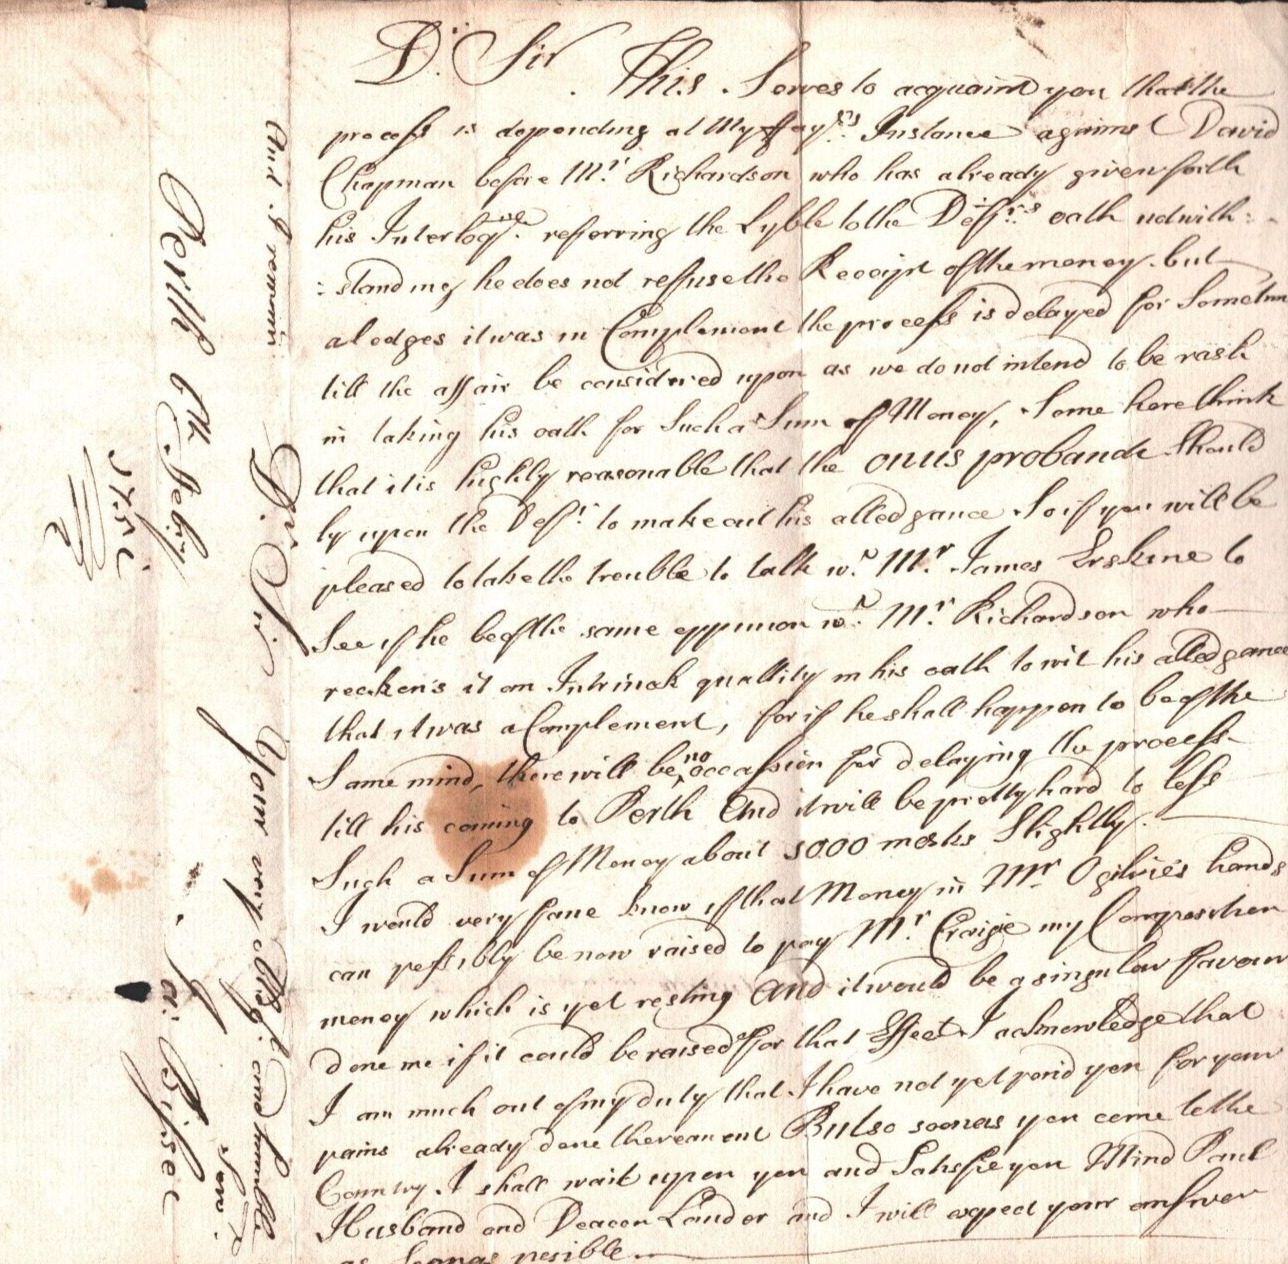 Dr. Sir This Serves to acquaint you that the
process is depending at My Instance against David
Chapman before Mr. Richardson who has already given forth
his Interloqre. referring the Lyble to the Deffrs. oath notwith:
:standing he does not reffuse the Receipt of the money but
aledges it was in Complement the process is delayed for Sometime
till the affair be considered upon as we do not intend to be rash
in taking his oath for Such a Sum of Money, Some here think
that it is highly reasonable that the onus probandi should
ly upon the Deffr. to make out his alledgance So if you will be
pleased to take the trouble to talk wt. Mr. James Erskine to
See if he be of the same oppinion wt. Mr. Richardson who
recken's it an Intrinck quallity in his oath to wit his alledgance
that it was a Complement, for if he shall happen to be of the
Same mind, there will be no occassion for delaying the process
till his coming to Perth And it will be pretty hard to less
Such a Sum of Money about 5000 merks Slightly.
I would very fane know if that Money in Mr. Ogilvie's hands
can possibly be now raised to pay Mr. Craigie my Composition
money which is yet resting And it would be a singular ffavour
done me if it could be raised for that Effect I acknowledge that
I am much out of my duty that I have not yet paid you for your
pains already done thereanent But so soon as you come to the
Country I shall wait upon you and Satisfie you Mind Paul
Husband and Deacon Lauder and I will expect your answer
as soon as posible
And I remain
Dr. Sir Your very oblig'd. and humble
Serv.
Ja: Bisset
Perth 6th. Feb'ry